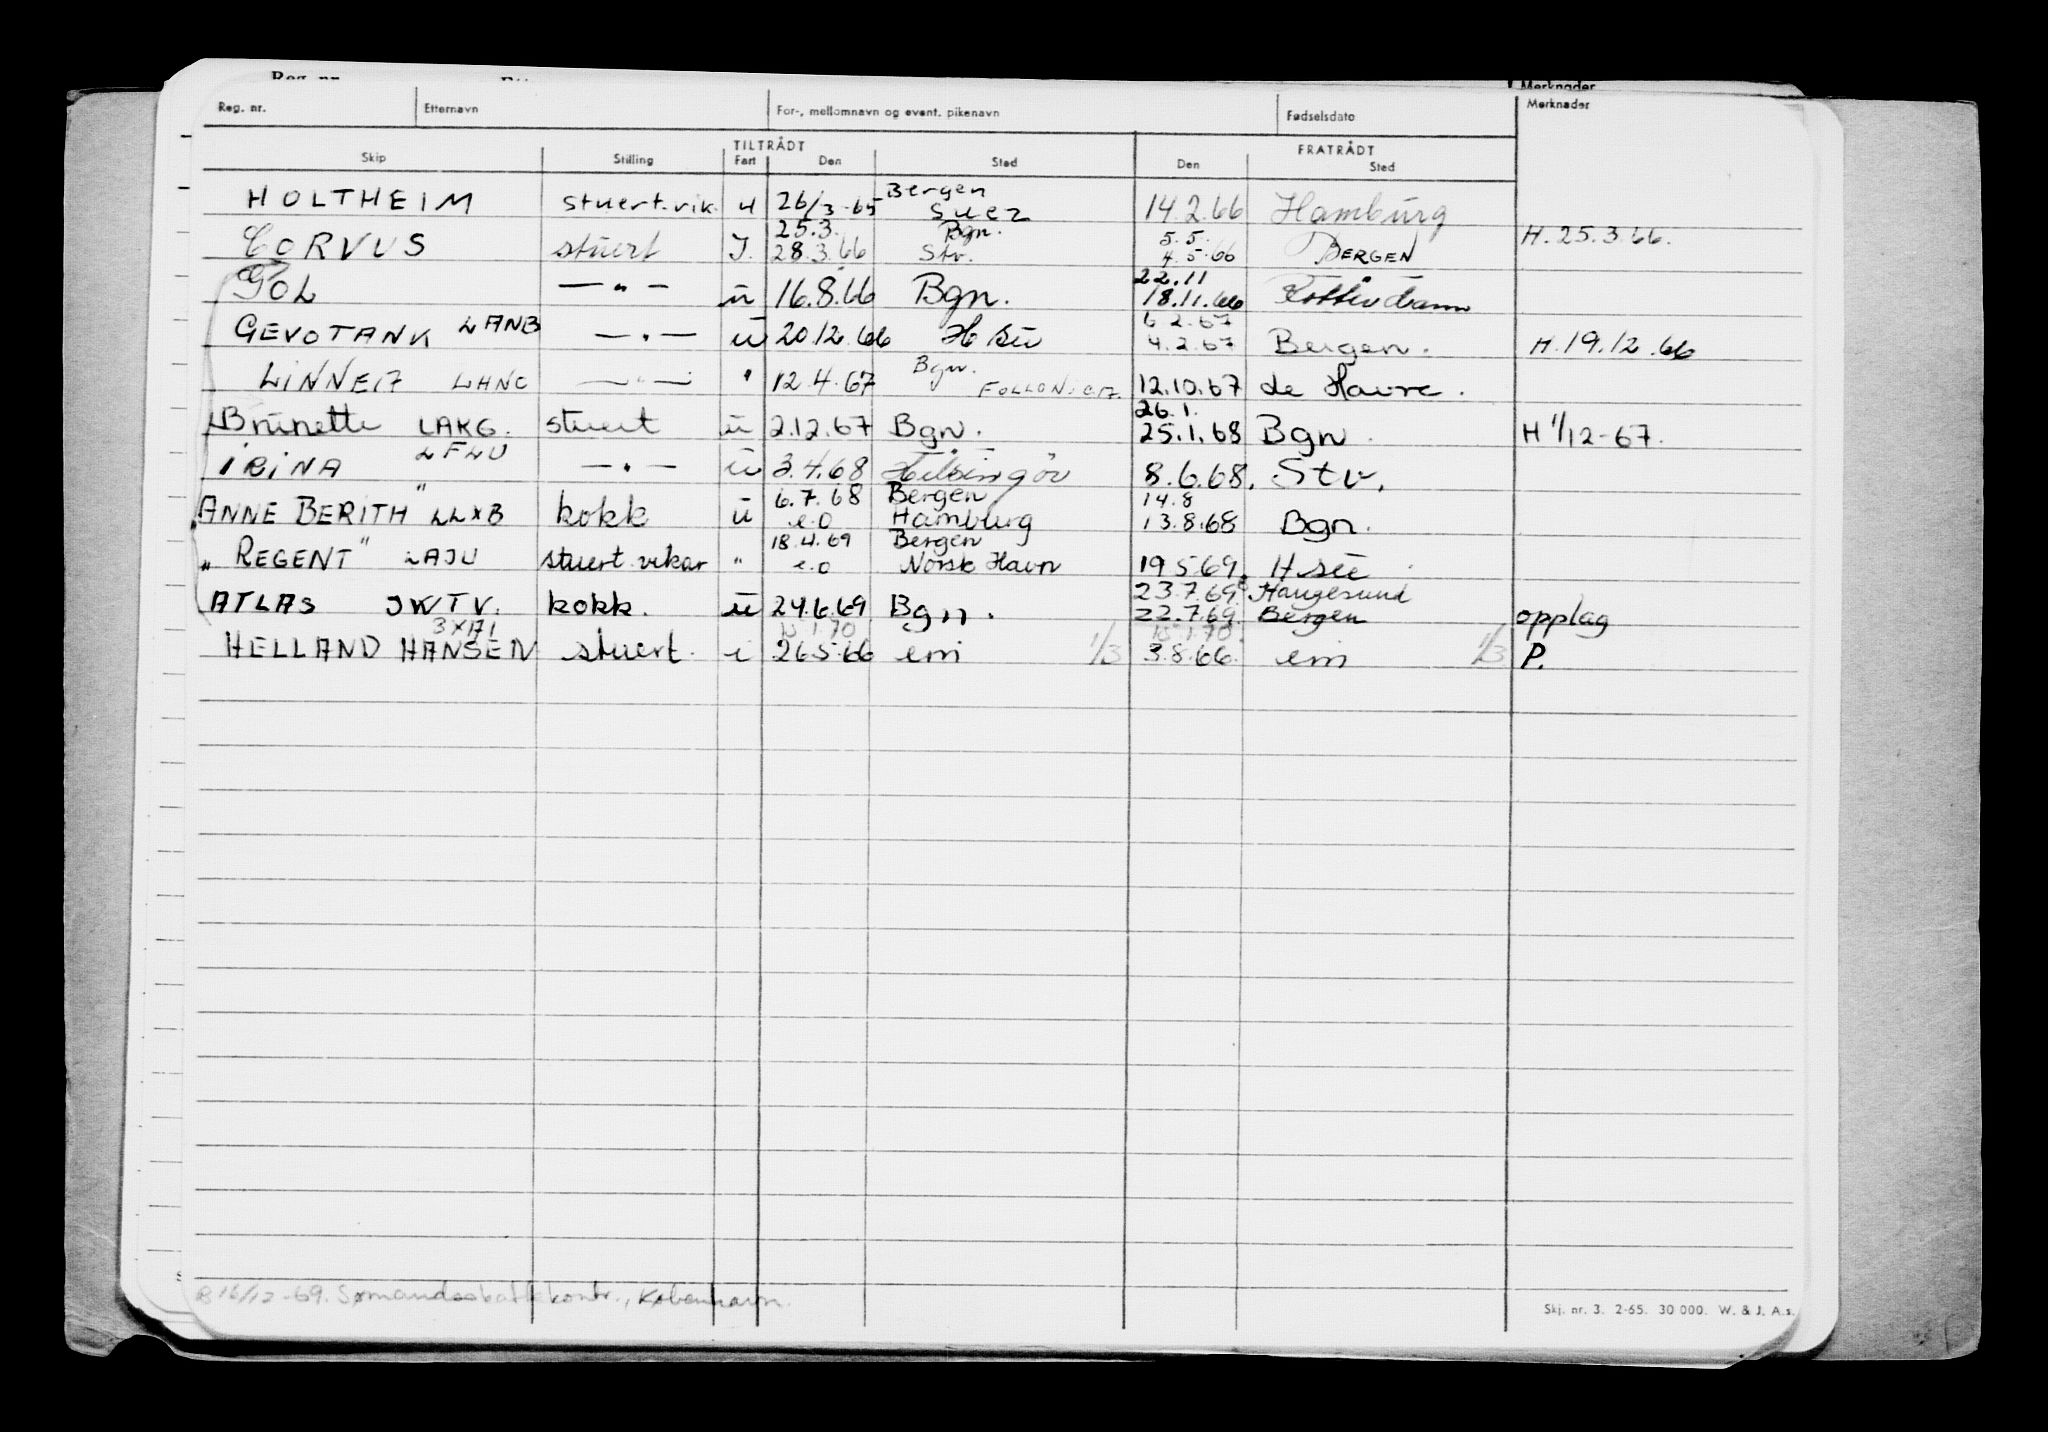 Reg. nr. Etternavn For-, mellomnavn og event. pikenavn Fødselsdato Merknader
TILTRÅDT FRATRÅDT
Skip Stilling Fart Den Sted Den Sted
Bergen
HOLTHEIM stuert.vik. u 26/3-65 Suez 14.2.66 Hamburg
25.3. Bgn. 5.5. H. 25.3.66.
CORVUS stuert J. 28.3.66 Stv. 4.5.66 BERGEN
22.11
GOL — " — u 16.8.66 Bgn. 18.11.66 Rotterdam
6.2.67
GEVOTANK LANB — " — u 20.12.66 Hsu 4.2.67 Bergen. H. 19.12.66
Bgn.
LINNEA LHNC — " — " 12.4.67 FOLLONICA. 12.10.67 de Havre.
26.1.
Brunette LAKG. stuert u 2.12.67 Bgn. 25.1.68 Bgn. H 1/12-67.
IRINA LFLU — " — u 3.4.68 Helsingör 8.6.68. Stv.
6.7.68 Bergen 14.8
ANNE BERITH" LLXB kokk u e.o Hamburg 13.8.68 Bgn.
18.4.69 Bergen
"REGENT" LAJU stuert.vikar " e.o Norsk Havn 19.5.69. Hsu
23.7.69. Haugesund
ATLAS JWTV. kokk. u 24.6.69 Bgn. 22.7.69. Bergen opplag
3XA1 15.1.70 15.1.70.
HELLAND HANSEN stuert. i 26.5.66 em 1/3 3.8.66. em 1/3 P.
B 16/12-69. Sømandsskattekontr., København.
Skj. nr. 3. 2-65. 30 000. W. & J. A.s.